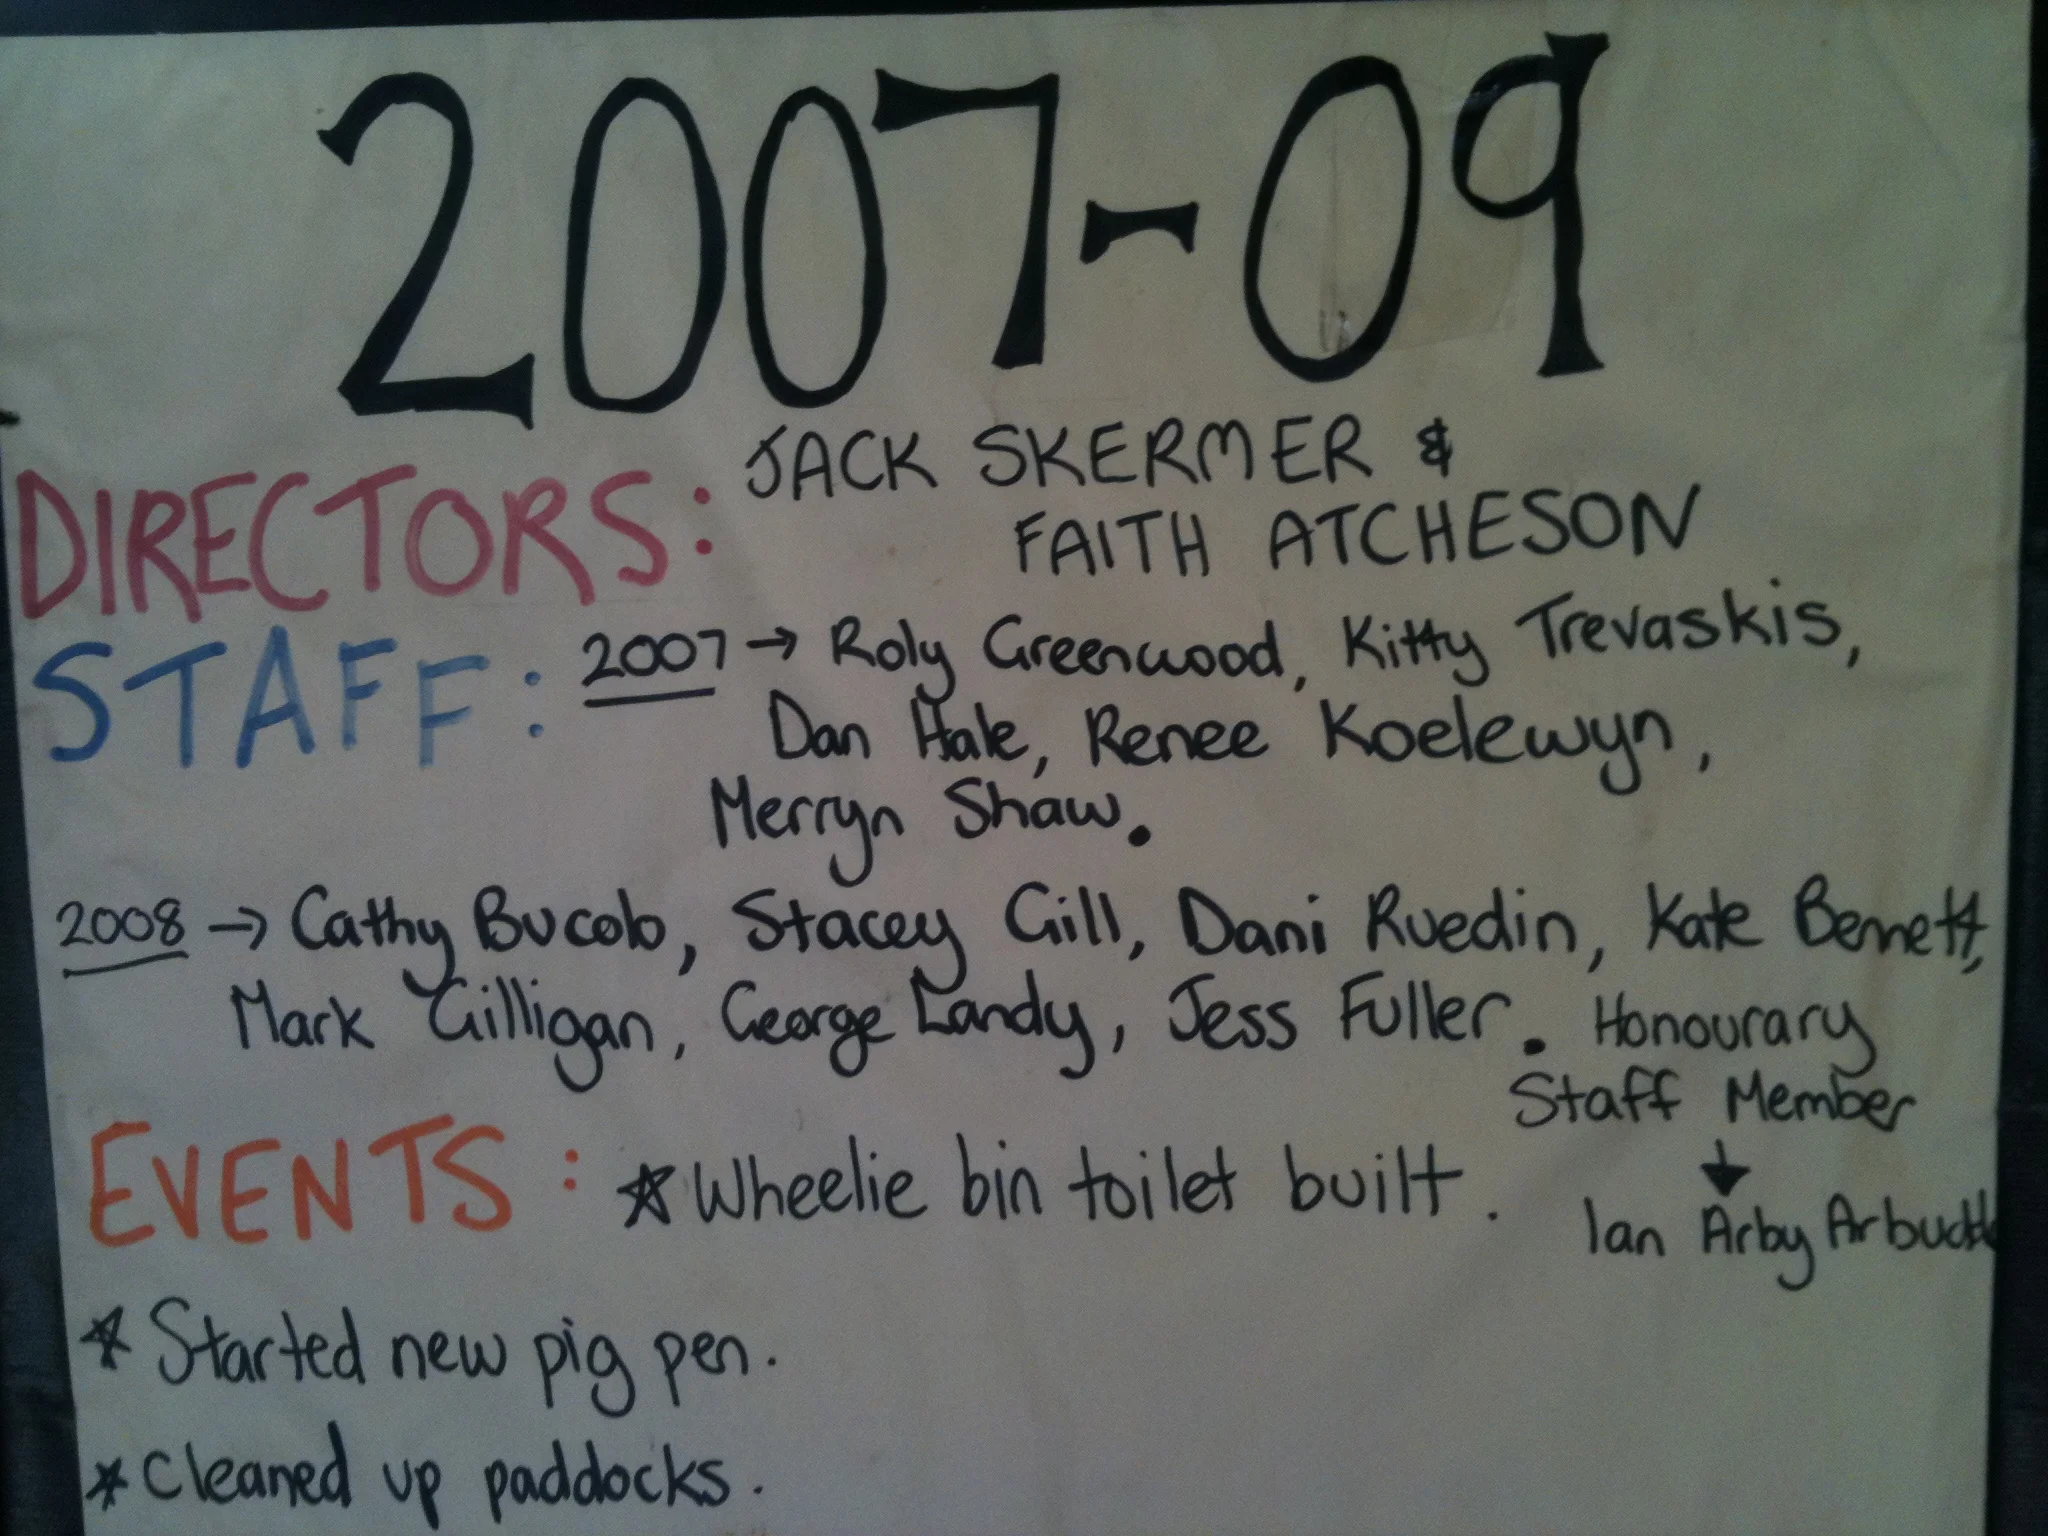 2007-09
DIRECTORS: JACK SKERMER &
FAITH ATCHESON
STAFF: 2007 → Roly Greenwood, Kitty Trevaskis,
Dan Hale, Renee Koelewyn,
Merryn Shaw.
2008 → Cathy Bucolo, Stacey Gill, Dani Ruedin, Kate Bennett,
Mark Gilligan, George Landy, Jess Fuller. Honourary
Staff Member
Ian Arby Arbuckle
EVENTS: * Wheelie bin toilet built.
* Started new pig pen.
* Cleaned up paddocks.